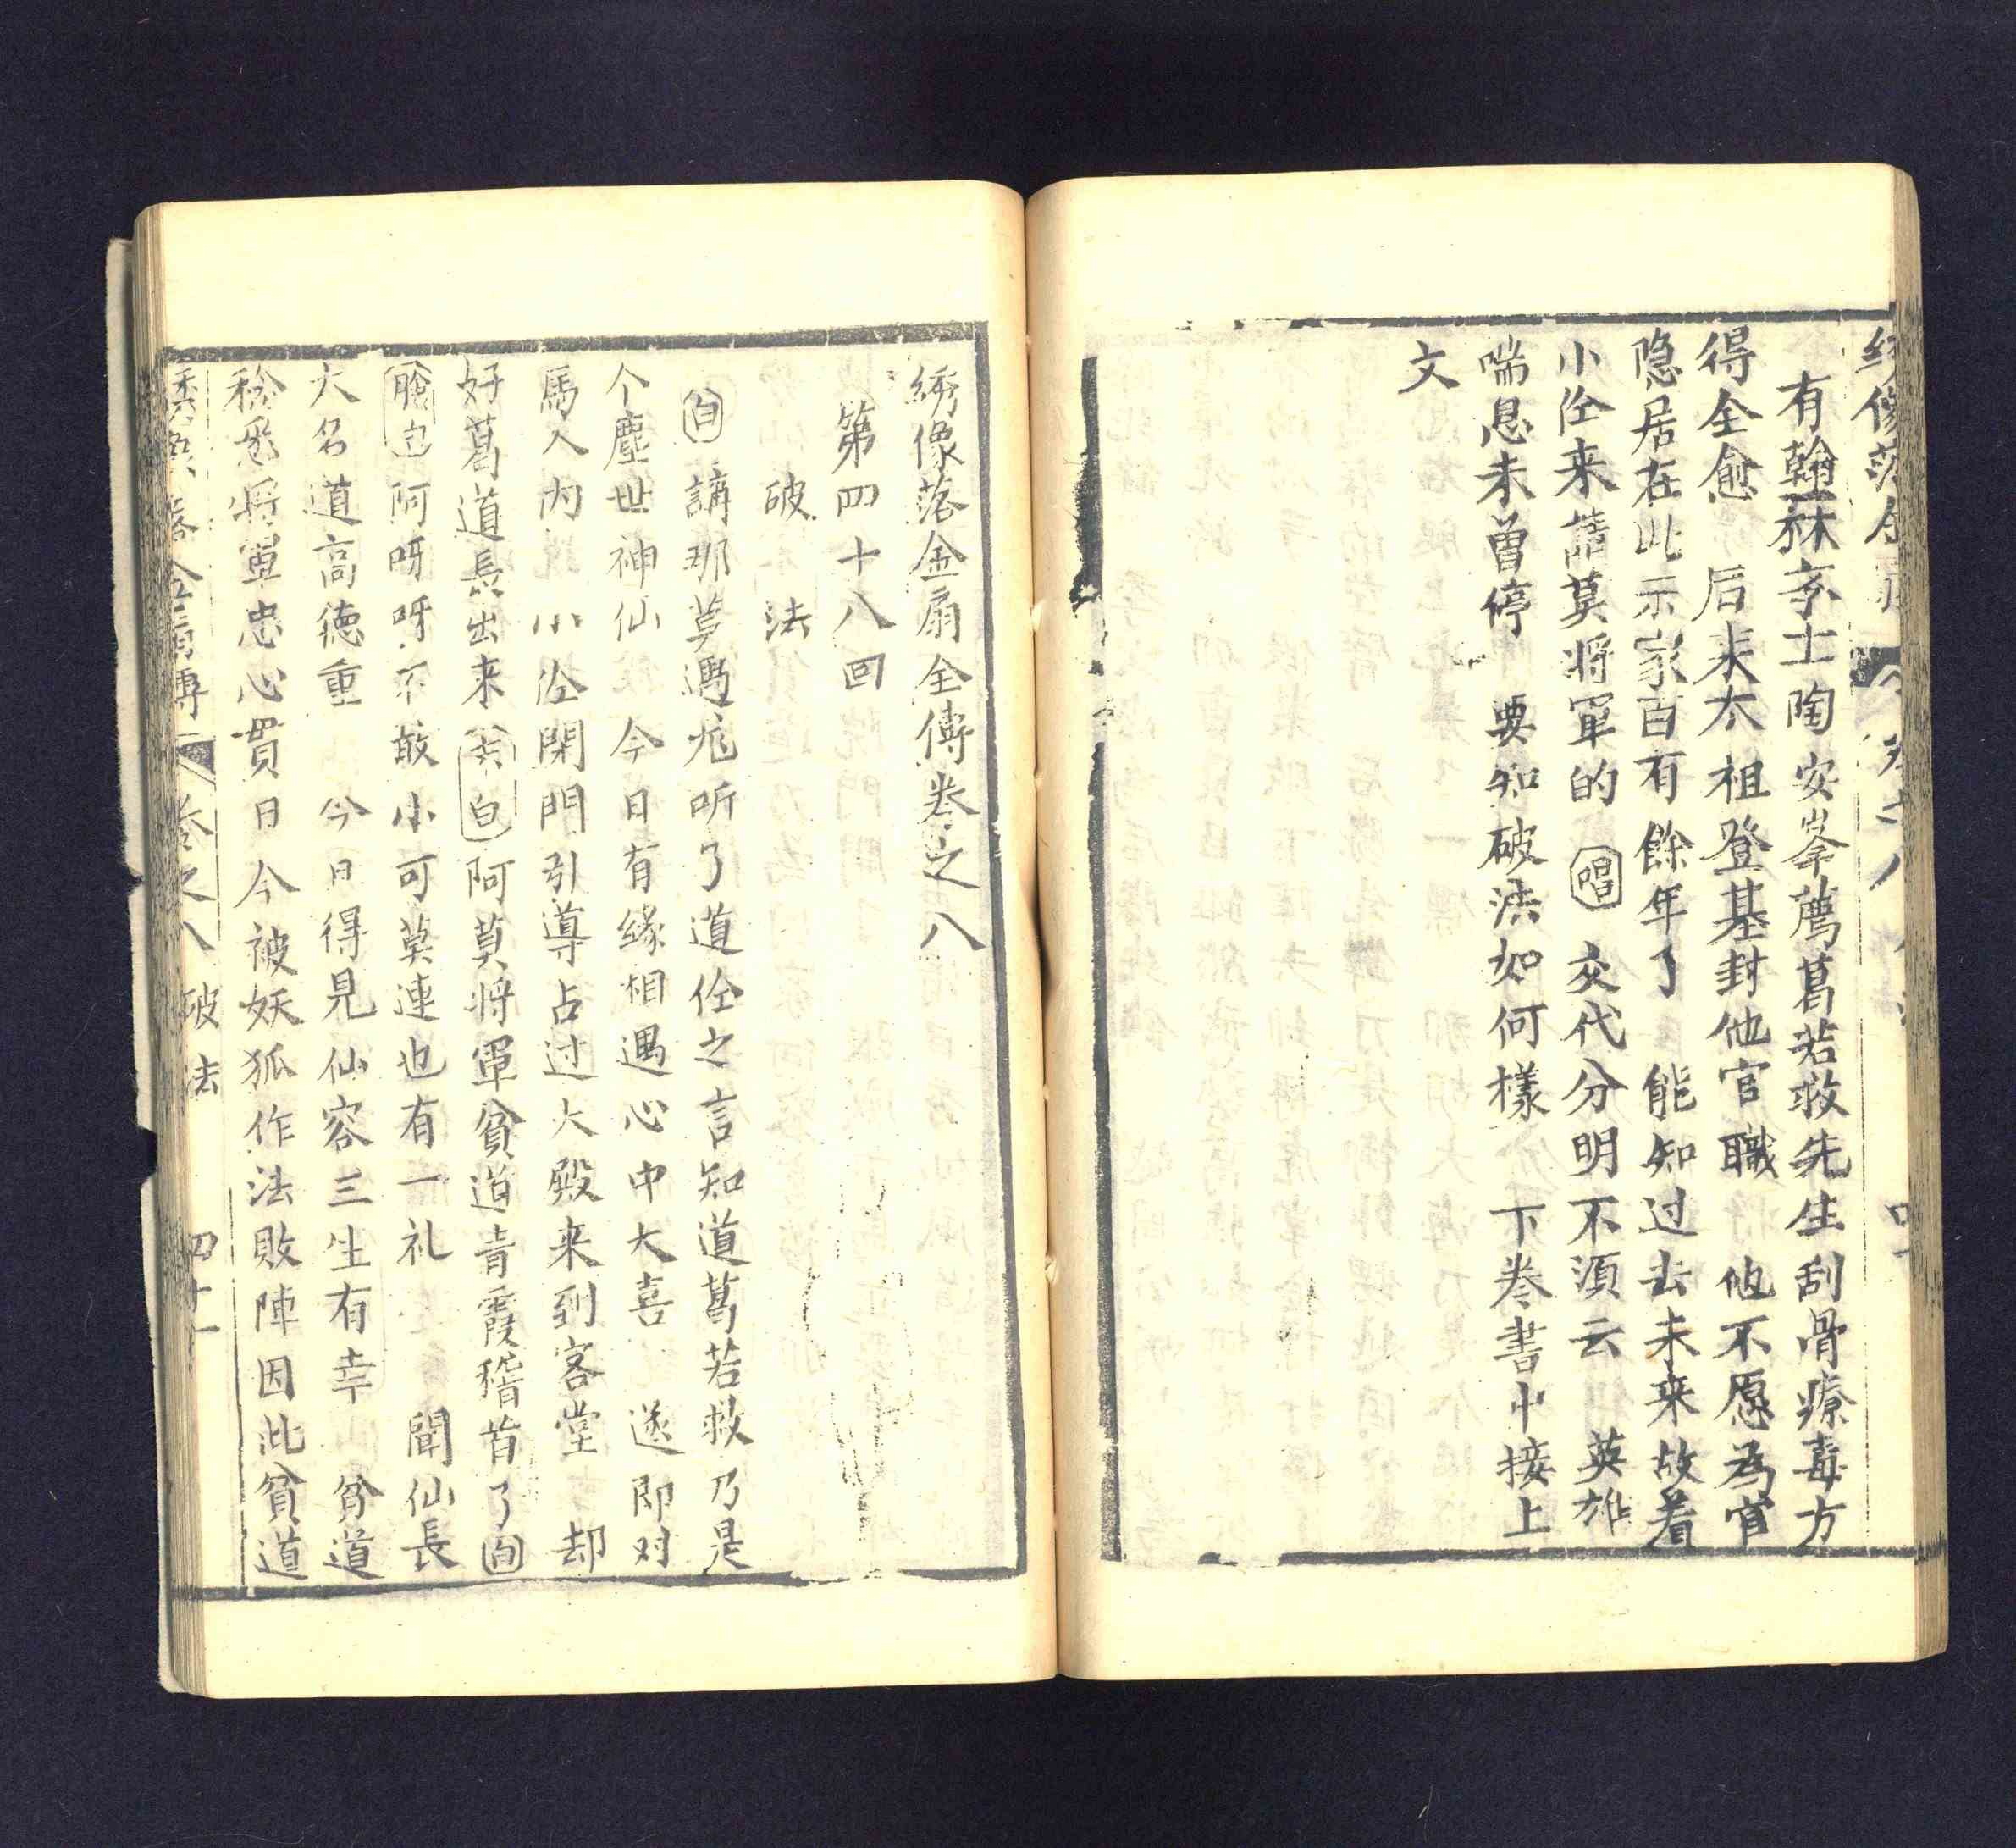 有翰林斈士陶安峯薦葛若救先生刮骨療毒方
得全愈 后来太祖登基封他官職 他不愿為官
隐居在此示家百有餘年了 能知过去未来故着
小伩来請莫将军的 唱 交代分明不須云 英雄
喘息未曾停 要知破法如何樣 下卷書中接上
文
綉像落金扇全傳卷之八
第四十八回
破法
白 講那莫遇尨听了道伩之言知道葛若救乃是
个塵世神仙 今日有緣相遇心中大喜 遂即对
馬入內 小伩閑門引導占过大殿来到客堂 却
好葛道長出来 白 阿莫将軍貧道青霞稽首了 白
阿呀呀不敢小可莫連也有一礼 聞仙長
大名道高德重 今日得見仙容三生有幸 貧道
稔悉将軍忠心貫日今被妖狐作法敗陣因此貧道
金扇傳 卷之八 破法 四十一